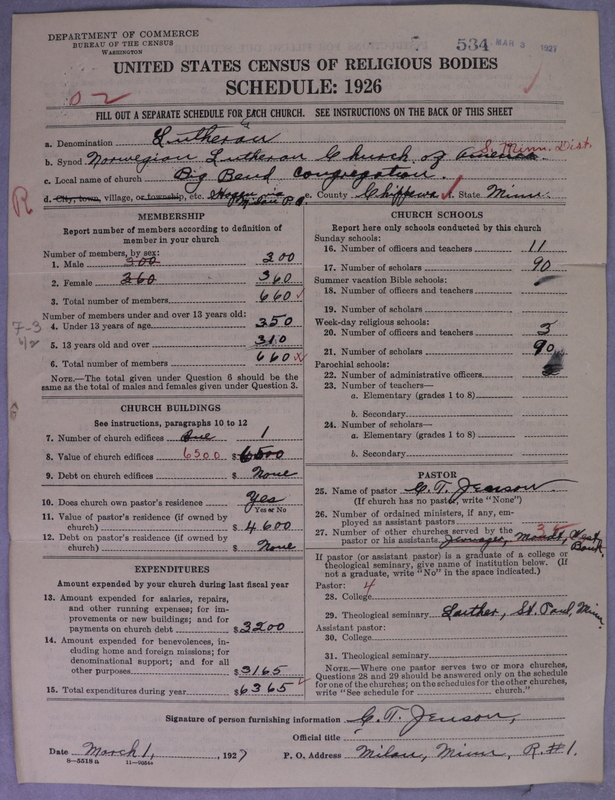 DEPARTMENT OF COMMERCE
BUREAU OF THE CENSUS
WASHINGTON
534 MAR 3 1927
UNITED STATES CENSUS OF RELIGIOUS BODIES
SCHEDULE: 1926
02
FILL OUT A SEPARATE SCHEDULE FOR EACH CHURCH. SEE INSTRUCTIONS ON THE BACK OF THIS SHEET
a. Denomination Lutheran
b. Synod Norwegian Lutheran Church of America. S. Minn. Dist.
c. Local name of church Big Bend Congregation.
R
d. City, town, village, or township, etc. Hagen via Milan P.O. e. County Chippewa f. State Minn.
MEMBERSHIP
Report number of members according to definition of member in your church
Number of members, by sex:
1. Male 300 300
2. Female 360 360
3. Total number of members 660
Number of members under and over 13 years old:
4. Under 13 years of age 350
5. 13 years old and over 310
6. Total number of members 660
NOTE.—The total given under Question 6 should be the same as the total of males and females given under Question 3.
CHURCH BUILDINGS
See instructions, paragraphs 10 to 12
7. Number of church edifices One 1
8. Value of church edifices 6500 $ 6500
9. Debt on church edifices $ None
10. Does church own pastor's residence Yes
Yes or No
11. Value of pastor's residence (if owned by church) $ 4600
12. Debt on pastor's residence (if owned by church) $ None
EXPENDITURES
Amount expended by your church during last fiscal year
13. Amount expended for salaries, repairs, and other running expenses; for improvements or new buildings; and for payments on church debt $ 3200
14. Amount expended for benevolences, including home and foreign missions; for denominational support; and for all other purposes $ 3165
15. Total expenditures during year $ 6365
CHURCH SCHOOLS
Report here only schools conducted by this church
Sunday schools:
16. Number of officers and teachers 11
17. Number of scholars 90
Summer vacation Bible schools:
18. Number of officers and teachers
19. Number of scholars
Week-day religious schools:
20. Number of officers and teachers 3
21. Number of scholars 90
Parochial schools:
22. Number of administrative officers
23. Number of teachers—
a. Elementary (grades 1 to 8)
b. Secondary
24. Number of scholars—
a. Elementary (grades 1 to 8)
b. Secondary
PASTOR
25. Name of pastor C. T. Jenson
(If church has no pastor, write "None")
26. Number of ordained ministers, if any, employed as assistant pastors
27. Number of other churches served by the pastor or his assistants 3
If pastor (or assistant pastor) is a graduate of a college or theological seminary, give name of institution below. (If not a graduate, write "No" in the space indicated.)
Pastor: 4
28. College
29. Theological seminary Luther, St. Paul, Minn.
Assistant pastor:
30. College
31. Theological seminary
NOTE.—Where one pastor serves two or more churches, Questions 28 and 29 should be answered only on the schedule for one of the churches; on the schedules for the other churches, write "See schedule for church."
Signature of person furnishing information C. T. Jenson,
Official title
Date March 1, 1927 P. O. Address Milan, Minn, R.#1.
8-5518a 11-9054